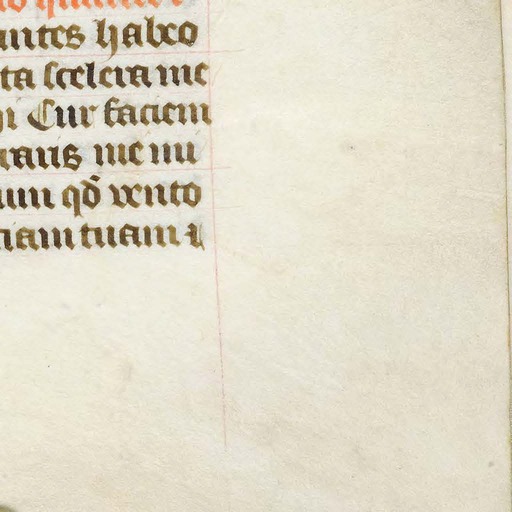 antes habeo
ta scelera me
hi Cur faciem
trans me ini
um qđ vento
ciam tuam ⁊